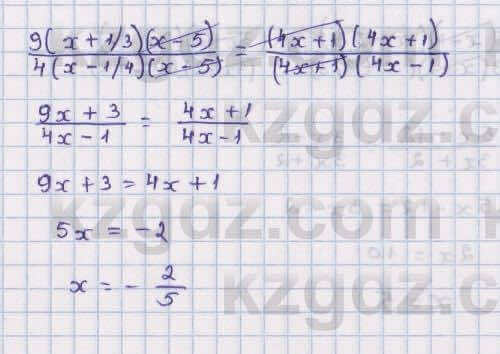 9(x+1/3)(x-5)/4(x-1/4)(x-5) = (4x+1)(4x+1)/(4x+1)(4x-1)
9x+3/4x-1 = 4x+1/4x-1
9x+3=4x+1
5x=-2
x=-2/5
kzgdz.com
kzgdz.com
kzgdz.com